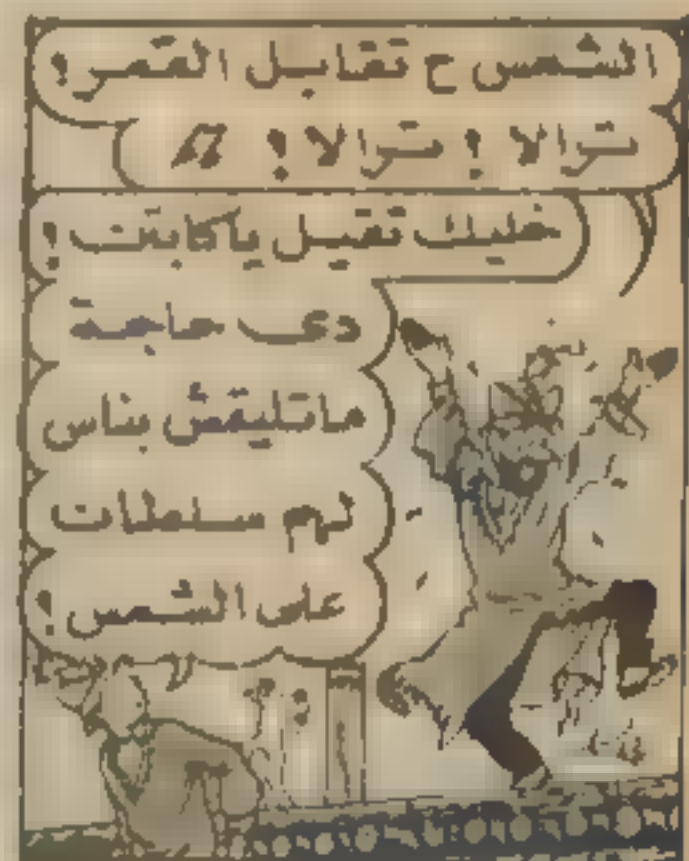 الشمس ح تقابل القمر!
ترالا! ترالا!
خليك تقيل يا كابتن!
دى حاجة
ماتليقش بناس
لهم سلطات
على الشمس!